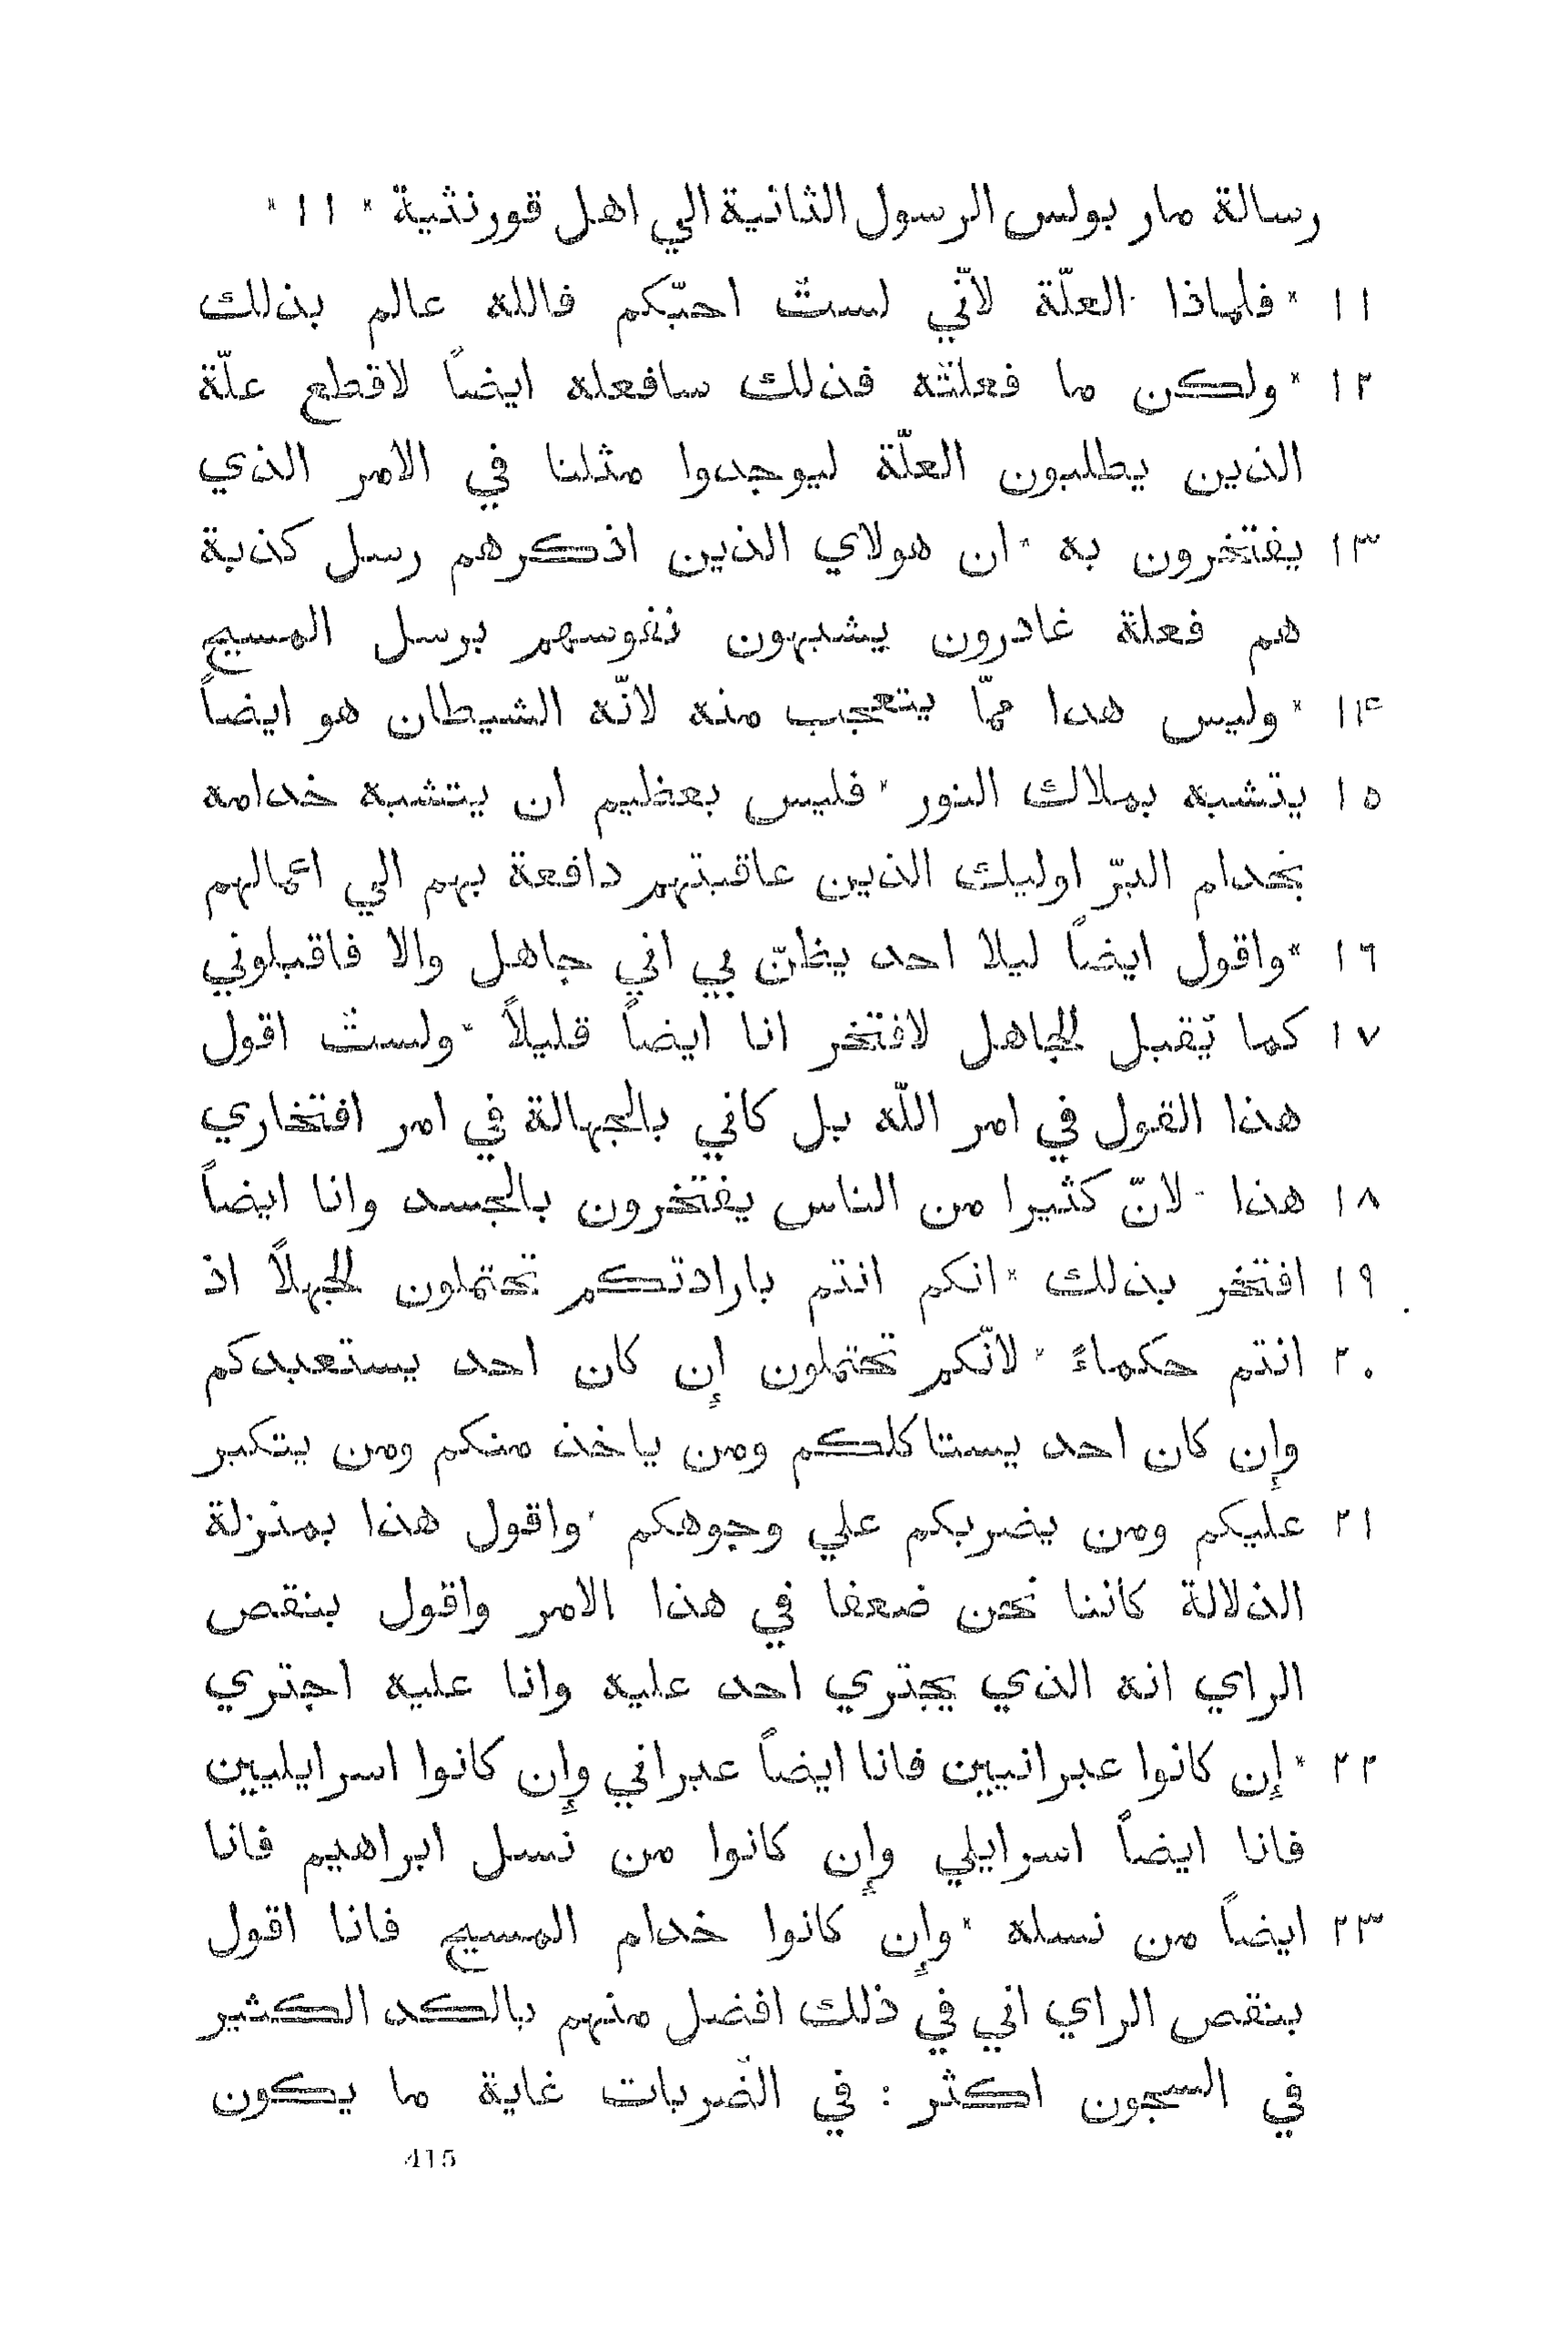 رسالة مار بولس الرسول الثانية الي اهل قورنثية * ١١ *
١١ * فلماذا العلّة لانّي لست احبّكم فالله عالم بذلك
١٢ * ولكن ما فعلته فذلك سافعله ايضاً لاقطع علّة
الذين يطلبون العلّة ليوجدوا مثلنا في الامر الذي
١٣ يفتخرون به * ان هولاي الذين اذكرهم رسل كذبة
هم فعلة غادرون يشبهون نفوسهم برسل المسيح
١۴ * وليس هدا ممّا يتعجب منه لانّه الشيطان هو ايضاً
١٥ يتشبه بملاك النور * فليس بعظيم ان يتشبه خدامه
بخدام البرّ اوليك الذين عاقبتهم دافعة بهم الي اعمالهم
١٦ * واقول ايضاً ليلا احد يظنّ بي اني جاهل والا فاقبلوني
١٧ كما تقبل الجاهل لافتخر انا ايضاً قليلاً * ولست اقول
هذا القول في امر اللّه بل كاني بالجهالة في امر افتخاري
١٨ هذا * لانّ كثيرا من الناس يفتخرون بالجسد وانا ايضاً
١٩ افتخر بذلك * انكم انتم بارادتكم تحتملون الجهلاً اذ
٢٠ انتم حكماءً * لانّكم تحتملون إن كان احد يستعبدكم
وإن كان احد يستاكلكم ومن ياخذ منكم ومن يتكبر
٢١ عليكم ومن يضربكم علي وجوهكم * واقول هذا بمنزلة
الذلالة كأننا نحن ضعفا في هذا الامر واقول بنقص
الراي انه الذي يجتري احد عليه وانا عليه اجتري
٢٢ * إن كانوا عبرانيين فانا ايضاً عبراني وإن كانوا اسرايليين
فانا ايضاً اسرايلي وإن كانوا من نسل ابراهيم فانا
٢٣ ايضاً من نسله * وإن كانوا خدام المسيح فانا اقول
بنقص الراي اني في ذلك افضل منهم بالكد الكثير
في السجون اكثر : في الضربات غاية ما يكون
415